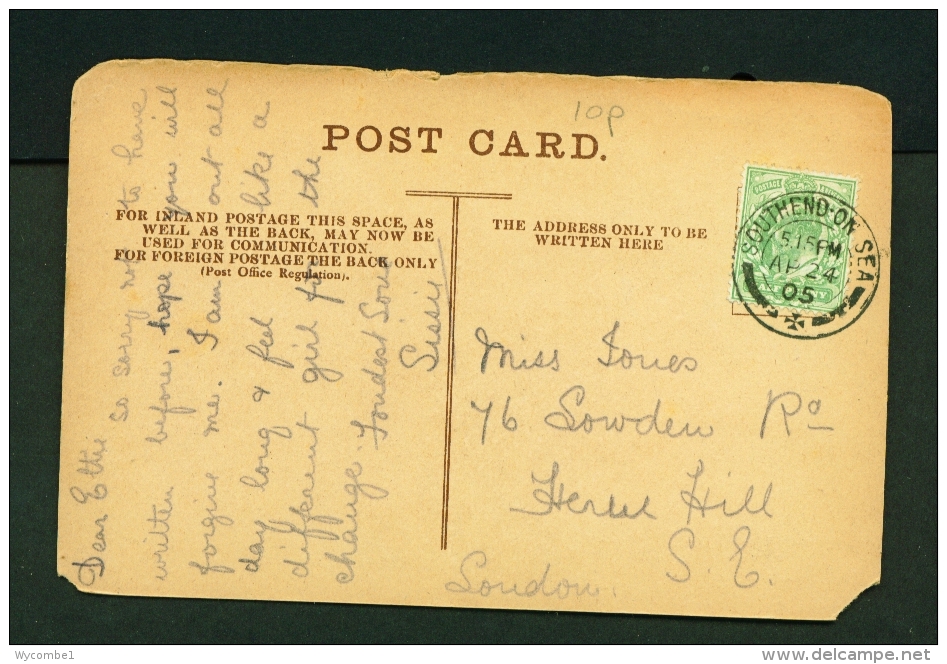 10p
POST CARD.
FOR INLAND POSTAGE THIS SPACE, AS
WELL AS THE BACK, MAY NOW BE
USED FOR COMMUNICATION.
FOR FOREIGN POSTAGE THE BACK ONLY
(Post Office Regulation).
THE ADDRESS ONLY TO BE
WRITTEN HERE
POSTAGE
SOUTHEND-ON-SEA
5.15PM
AP 24
05
Dear Ettie
So sorry not to have
written before, hope you will
forgive me. I am out all
day long & feel like a
different girl for the
change. Fondest Love
Sissie
Miss Jones
76 Lowden Rd
Herne Hill
S.E.
London.
Wycombe1